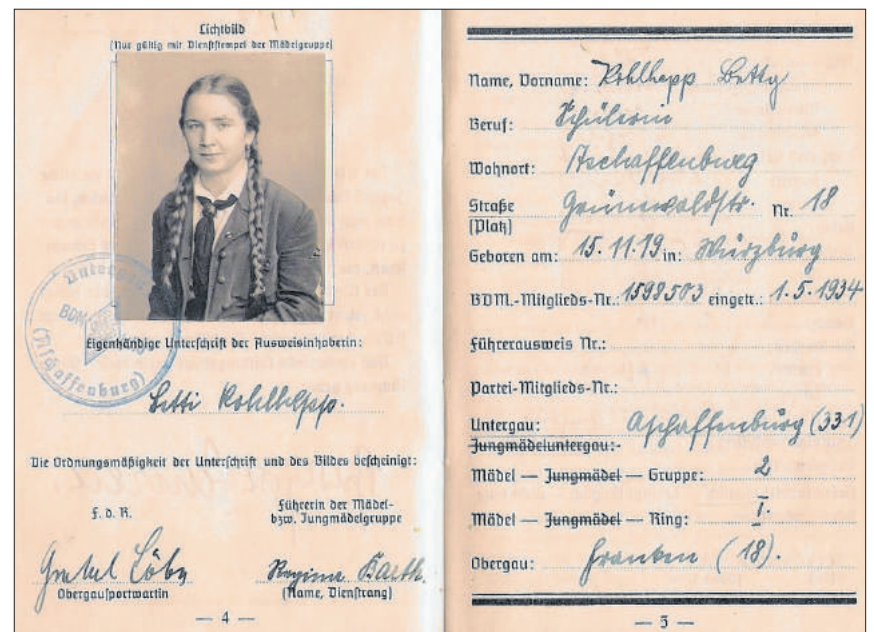 Lichtbild
(Nur gültig mit Dienststempel der Mädelgruppe)
Untergau
BDM
(Aschaffenburg)
Eigenhändige Unterschrift der Ausweisinhaberin:
Betti Kohlhepp.
Die Ordnungsmäßigkeit der Unterschrift und des Bildes bescheinigt:
F. d. R.
Führerin der Mädel-
bzw. Jungmädelgruppe
Gretel
Regina Barth.
Obergausportwartin
(Name, Dienstrang)
— 4 —
Name, Vorname: Kohlhepp Betty
Beruf: Schülerin
Wohnort: Aschaffenburg
Straße Grünewaldstr. Nr. 18
(Platz)
Geboren am: 15.11.19 in: Würzburg
BDM.-Mitglieds-Nr.: 1598503 eingetr.: 1.5.1934
Führerausweis Nr.:
Partei-Mitglieds-Nr.:
Untergau: Aschaffenburg (331)
Jungmädeluntergau:
Mädel — Jungmädel — Gruppe: 2
Mädel — Jungmädel — Ring: I.
Obergau: Franken (18).
— 5 —